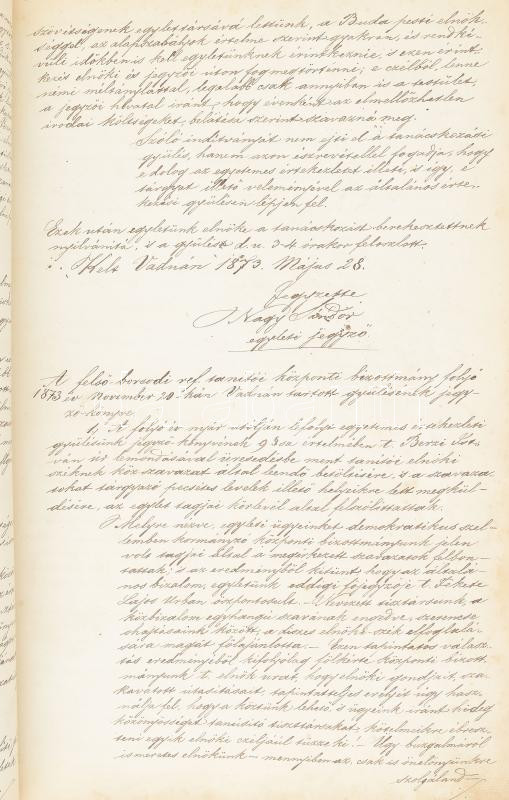 szövetségenek egylettársává lettünk, a Buda pesti elnök-
séggel, az alapszabályok értelme szerint gyakran, és rendki-
vüli időkben is kell egyletünknek érintkeznie, s ezen érint-
kezés elnöki és jegyzői uton fogmegtörténni; e czélból lenne
némi méltánylattal, legalább csak annyiban is a testület,
a jegyzői hivatal iránt, hogy évenként az elmellőzhetlen
irodai költségeket, belátása szerint szavazná meg.
Szóló inditványát nem ejti el a tanácskozási
gyülés, hanem azon észrevétellel fogadja, hogy
e dolog az egyetemes értekezletet illeti, s így, e
tárgyat illető véleményével az általános érte-
kezési gyülésen lépjen fel.
Ezek után egyletünk elnöke a tanácskozást berekesztettnek
nyilvánitá, s a gyülés d. u. 3-4 órakor feloszlott.
Kelt Vadnán 1873. Május 28.
Jegyzette
Nagy Sándor
egyleti jegyző.
A felső-borsodi ref. tanitói központi bizottmány folyó
1873 év November 20-kán Vadnán tartott gyülésének jegy-
ző-könyve
1, A folyó év nyár utóján lefolyt egyetemes értekezleti
gyülésünk jegyző könyvének 93sa értelmében t. Berzi Ist-
ván úr lemondásával üresedésbe ment tanitói elnöki
széknek köz szavazat által leendő betöltésére, s a szavaza-
tokat tárgyazó pecsétes levelek illető helyeikre lett megkül-
désére, az egylet tagjai körlevél által felszólittattak.
Melyre nézve, egyleti ügyeinket demokratikus szel-
lemben kormányzó központi bizottmányunk jelen
volt tagjai által a megérkezett szavazatok felbon-
tattak; s az eredményből kitünt, hogy az általá-
nos bizalom, egyletünk eddigi főjegyzője t. Fekete
Lajos urban özpontosult. – Nevezett tisztársunk, a
közbizalom egyhangú szavának engedve, szerencse
óhajtásaink között, a díszes elnöki-szék elfoglalá-
sára magát fölajánlotta. – Ezen tapintatos válasz-
tás eredményéből kifolyólag fölkérte központi bizott-
mányunk t. elnök urat, hogy elnöki gondjait, sza-
kavatott utasitásait, tapintatteljes erélyét úgy hasz-
nálja fel, hogy a köztünk lehető, s ügyeink iránt hideg
közönyösséget tanúsitó tiszttársakat, kötelmeikre ébresz-
teni egyik elnöki czéljául tüzzeki. – Úgy buzgalmáról
ismeretes elnökünk – mennyiben az, csak is önelőnyünkre
szolgáland –